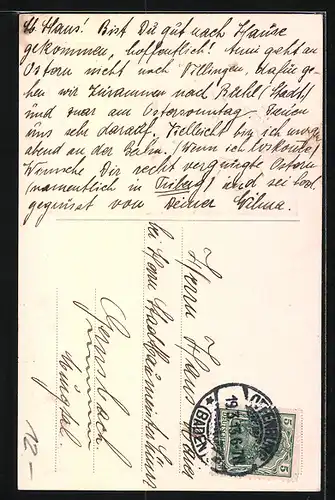 Lb. Hans! Bist Du gut nach Hause
gekommen, hoffentlich! Anni geht an
Ostern nicht nach Villingen, dafür ge-
hen wir zusammen nach (Stadt)
und zwar am Ostersonntag. Freuen
uns sehr darauf. Vielleicht bin ich
abend an der Bahn. (Wenn ich loskomme)
Wünsche Dir recht vergnügte Ostern
(namentlich in Triberg) und sei
gegrüsst von Deiner Wilma.
Herrn Hans
bei Herrn
Gernsbach
Murgtal
12-
OFFENBURG
(BADEN)
5
5